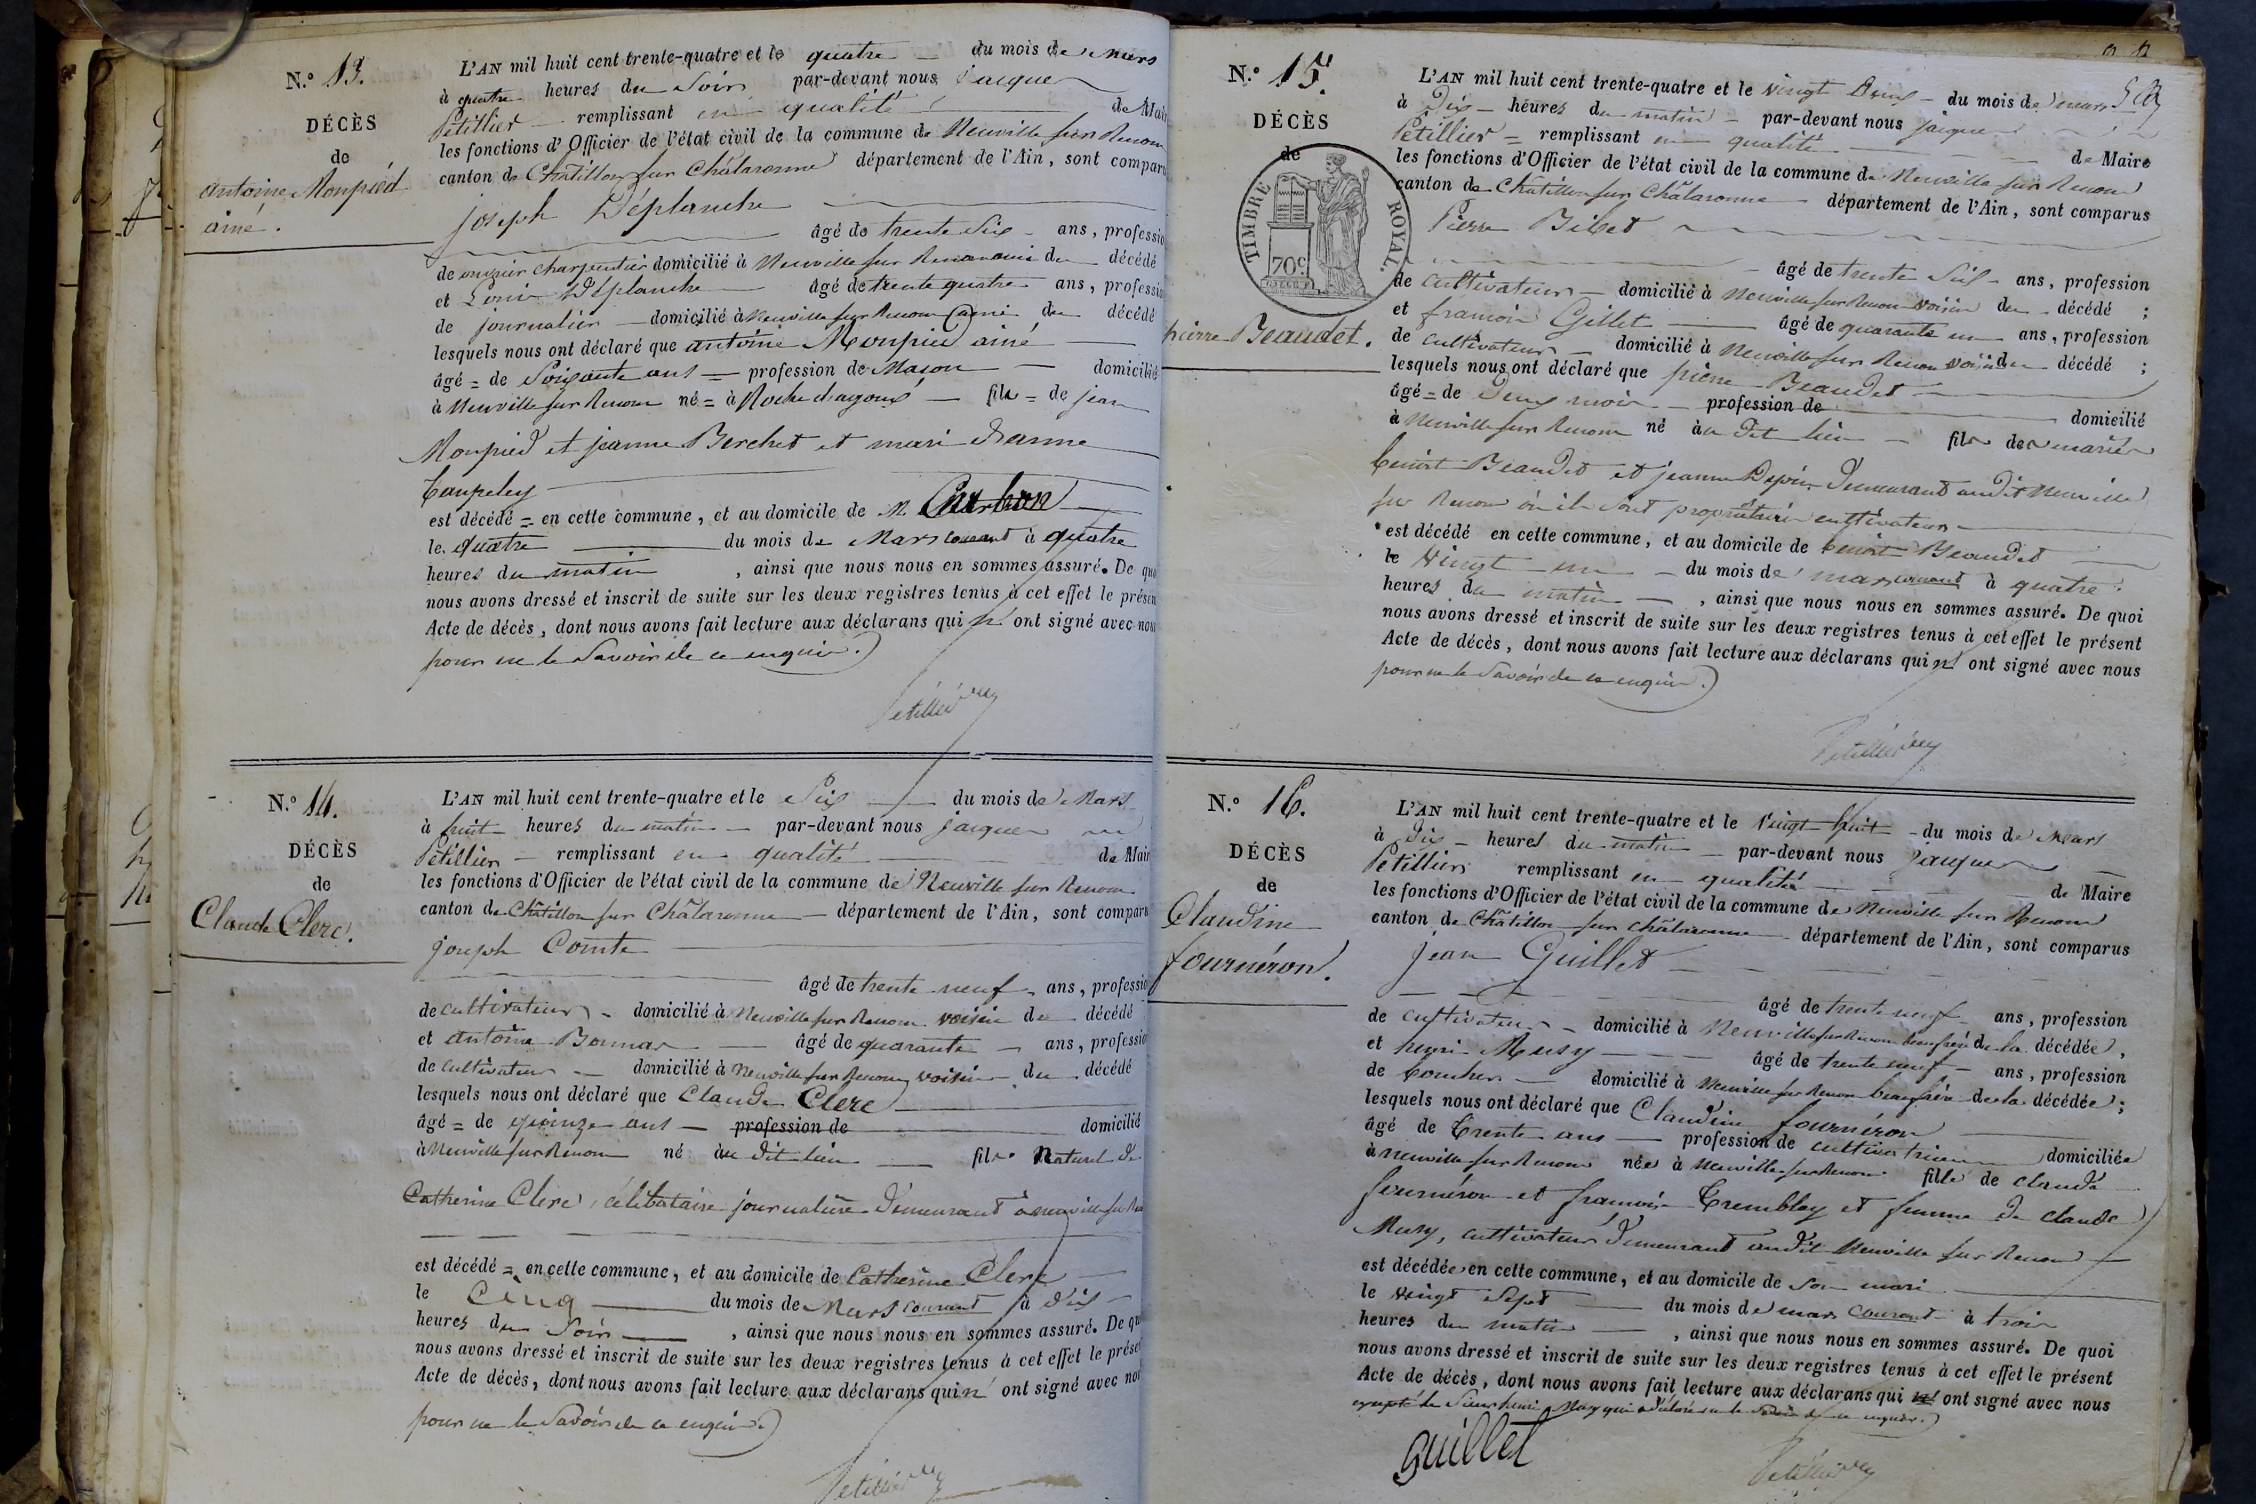 N.º 13.
DÉCÈS
de
Antoine Monpied
ainé.
L'AN mil huit cent trente-quatre et le quatre du mois de Mars
à quatre heures du Soir par-devant nous jacques
Petillier remplissant en qualité de Mair
les fonctions d'Officier de l'état civil de la commune de Neuville sur Renom
canton de Châtillon sur Châlaronne département de l'Ain, sont comparu
joseph Déplanche
âgé de trente Six ans, professio
de ouvrier charpentier domicilié à Neuville sur Renom ami du décédé
et Louis Déplanche âgé de trente quatre ans, professio
de journalier domicilié à Neuville sur Renom ami du décédé
lesquels nous ont déclaré que antoine Monpied ainé
âgé = de Soixante ans = profession de Maçon domicilié
à Neuville sur Renom né = à Roche d'agoux fils = de jean
Monpied et jeanne Berchet et mari d'anne
est décédé = en cette commune, et au domicile de M. Charbon
le quatre du mois de Mars courant à quatre
heures du matin, ainsi que nous nous en sommes assuré. De quo
nous avons dressé et inscrit de suite sur les deux registres tenus à cet effet le présen
Acte de décès, dont nous avons fait lecture aux déclarans qui n' ont signé avec nous
pour ne le Savoir de ce enquis.
Petillier
N.º 14.
DÉCÈS
de
Claude Clerc.
L'AN mil huit cent trente-quatre et le Six du mois de Mars
à huit heures du matin par-devant nous jacques
Petillier remplissant en qualité de Mair
les fonctions d'Officier de l'état civil de la commune de Neuville sur Renom
canton de Châtillon sur Châlaronne département de l'Ain, sont comparu
joseph Comte
âgé de trente neuf ans, professio
de cultivateur domicilié à Neuville sur Renom voisin du décédé
et antoine Bonnar âgé de quarante ans, professio
de cultivateur domicilié à Neuville sur Renom voisin du décédé
lesquels nous ont déclaré que Claude Clerc
âgé = de quinze ans profession de domicilié
à Neuville sur Renom né au dit lieu fils Naturel de
Catherine Clerc, célibataire journalière demeurant à neuville sur Ren
est décédé = en cette commune, et au domicile de Catherine Clerc
le Cinq du mois de Mars courant à dix
heures du Soir, ainsi que nous nous en sommes assuré. De qu
nous avons dressé et inscrit de suite sur les deux registres tenus à cet effet le prése
Acte de décès, dont nous avons fait lecture aux déclarans qui n' ont signé avec nou
pour ne le Savoir de ce enquis.
Petillier
N.º 15.
DÉCÈS
de
TIMBRE ROYAL.
70c
pierre Beaudet.
L'AN mil huit cent trente-quatre et le vingt Deux du mois de mars
à Dix heures du matin par-devant nous jacques
Petillier = remplissant en qualité de Maire
les fonctions d'Officier de l'état civil de la commune de Neuville sur Renom
canton de Châtillon sur Châlaronne département de l'Ain, sont comparus
Pierre Bibet
âgé de trente Six ans, profession
de cultivateur domicilié à Neuville sur Renom voisin du décédé ;
et francois Gillet âgé de quarante un ans, profession
de cultivateur domicilié à Neuville sur Renom voisin du décédé ;
lesquels nous ont déclaré que pierre Beaudet
âgé = de Deux mois profession de domicilié
à Neuville sur Renom né au Dit lieu fils des mariés
benoit Beaudet et jeanne Depin Demeurant audit Neuville
sur Renom où ils sont propriétaires cultivateurs
est décédé en cette commune, et au domicile de benoit Beaudet
le Vingt un du mois de mars courant à quatre
heures du matin, ainsi que nous nous en sommes assuré. De quoi
nous avons dressé et inscrit de suite sur les deux registres tenus à cet effet le présent
Acte de décès, dont nous avons fait lecture aux déclarans qui n' ont signé avec nous
pour ne le Savoir de ce enquis.
Petillier
N.º 16.
DÉCÈS
de
Claudine
fournéron.
L'AN mil huit cent trente-quatre et le Vingt huit du mois de Mars
à Dix heures du matin par-devant nous jacques
Petillier remplissant en qualité de Maire
les fonctions d'Officier de l'état civil de la commune de Neuville sur Renom
canton de Châtillon sur Châlaronne département de l'Ain, sont comparus
jean Guillet
âgé de trente neuf ans, profession
de cultivateur domicilié à Neuville sur Renom beau frère de la décédée,
et henri Musy âgé de trente neuf ans, profession
de domicilié à Neuville sur Renom beau frère de la décédée ;
lesquels nous ont déclaré que Claudine fournéron
âgé de Trente ans profession de cultivatrice domiciliée
à neuville sur Renom née à Neuville sur Renom fille de claude
fournéron et francoise Trembley et femme de claude
Musy, cultivateur demeurant audit Neuville sur Renom
est décédée en cette commune, et au domicile de Son mari
le vingt Sept du mois de mars courant à trois
heures du matin, ainsi que nous nous en sommes assuré. De quoi
nous avons dressé et inscrit de suite sur les deux registres tenus à cet effet le présent
Acte de décès, dont nous avons fait lecture aux déclarans qui ont signé avec nous
excepté le Sieur henri Musy qui a déclaré ne le Savoir de ce enquis.
guillet
Petillier